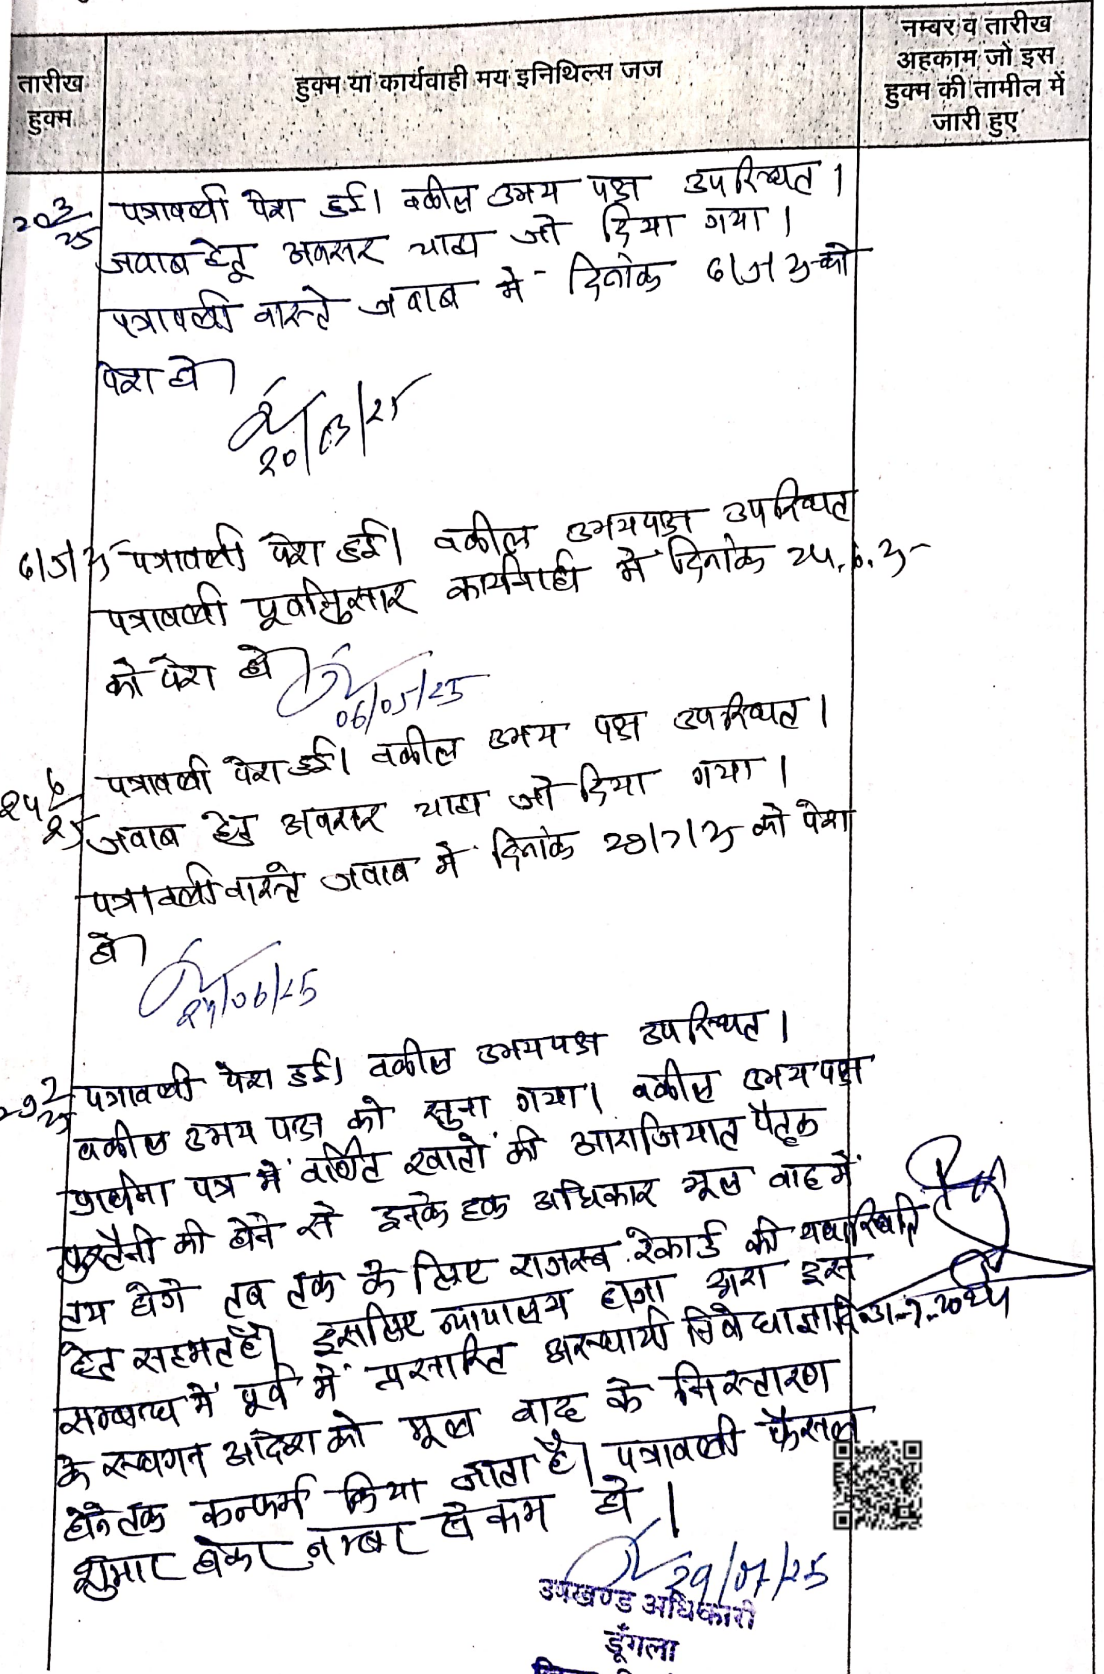 तारीख
हुक्म
हुक्म या कार्यवाही मय इनिथिल्स जज
नम्बर व तारीख
अहकाम जो इस
हुक्म की तामील में
जारी हुए
20 3/25 पत्रावली पेश हुई। वकील उभय पक्ष उपस्थित।
जवाब हेतु अवसर चाहा जो दिया गया।
पत्रावली वास्ते जवाब में दिनांक 6/5/25 को
पेश हो।
20/03/25
6/5/25 पत्रावली पेश हुई। वकील उभयपक्ष उपस्थित
पत्रावली पूर्वानुसार कार्यवाही में दिनांक 24.6.25
को पेश हो।
06/05/25
24 6/25 पत्रावली पेश हुई। वकील उभय पक्ष उपस्थित।
जवाब हेतु अवसर चाहा जो दिया गया।
पत्रावली वास्ते जवाब में दिनांक 29/7/25 को पेश
हो।
24/06/25
29 7/25 पत्रावली पेश हुई। वकील उभयपक्ष उपस्थित।
वकील उभय पक्ष को सुना गया। वकील उभयपक्ष
प्रार्थना पत्र में वर्णित खातों की आराजियात पैतृक
पुश्तैनी की होने से इनके हक अधिकार मूल वाद में
तय होगे तब तक के लिए राजस्व रेकार्ड की यथास्थिति
हेतु सहमत है। इसलिए न्यायालय हाजा द्वारा इस
सम्बन्ध में पूर्व में प्रसारित अस्थायी निषेधाज्ञा
के स्थगन आदेश को मूल वाद के निस्तारण
होने तक कन्फर्म किया जाता है। पत्रावली फैसल
शुमार होकर नम्बर से कम हो।
29/07/25
उपखण्ड अधिकारी
डूँगला